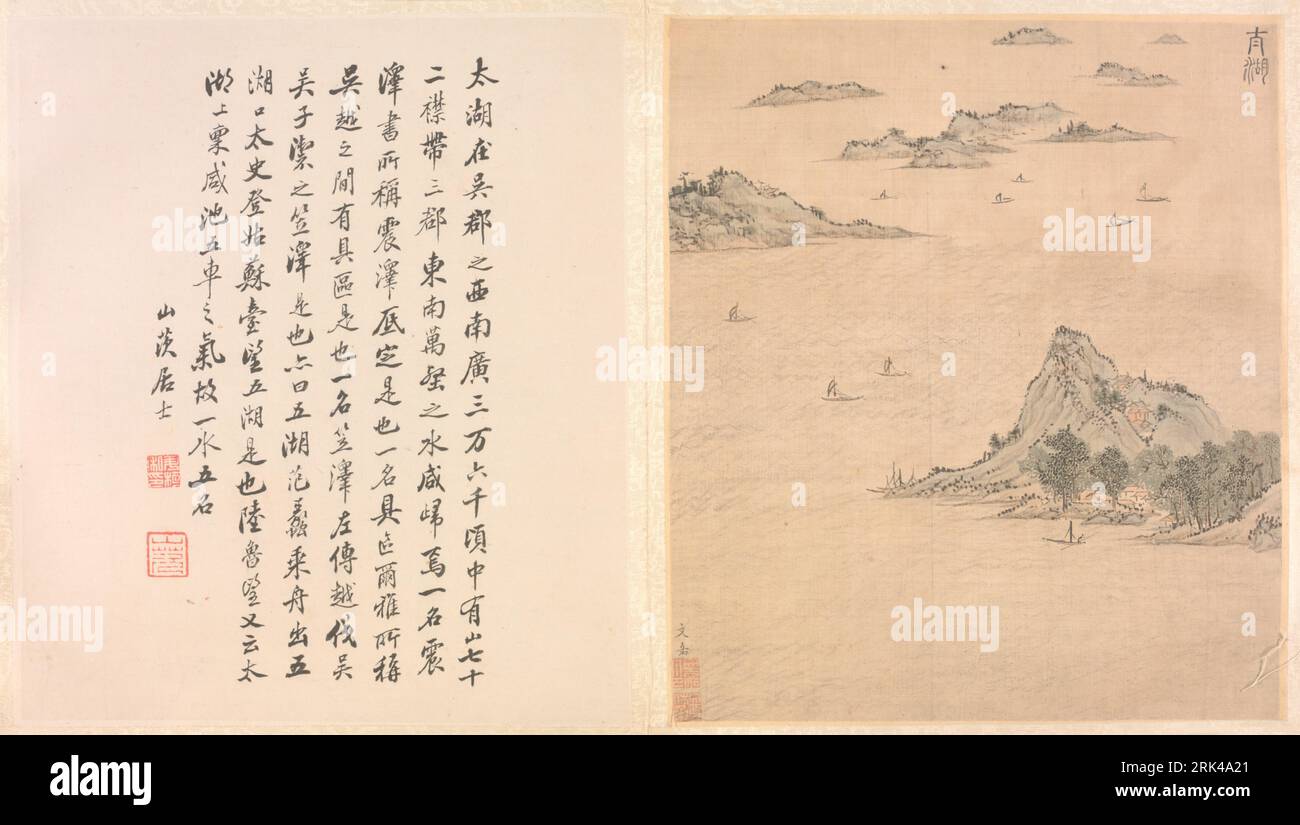 太湖
太湖在吳郡之西南廣三万六千頃中有山七十
二襟帶三郡東南萬壑之水咸歸焉一名震
澤書所稱震澤底定是也一名具區爾雅所稱
吳越之間有具區是也一名笠澤左傳越伐吳
吳子禦之笠澤是也亦曰五湖范蠡乘舟出五
湖口太史登姑蘇臺望五湖是也陸魯望又云太
湖上稟咸池五車之氣故一水五名
山茨居士
alamy
Image ID: 2RK4A21
www.alamy.com